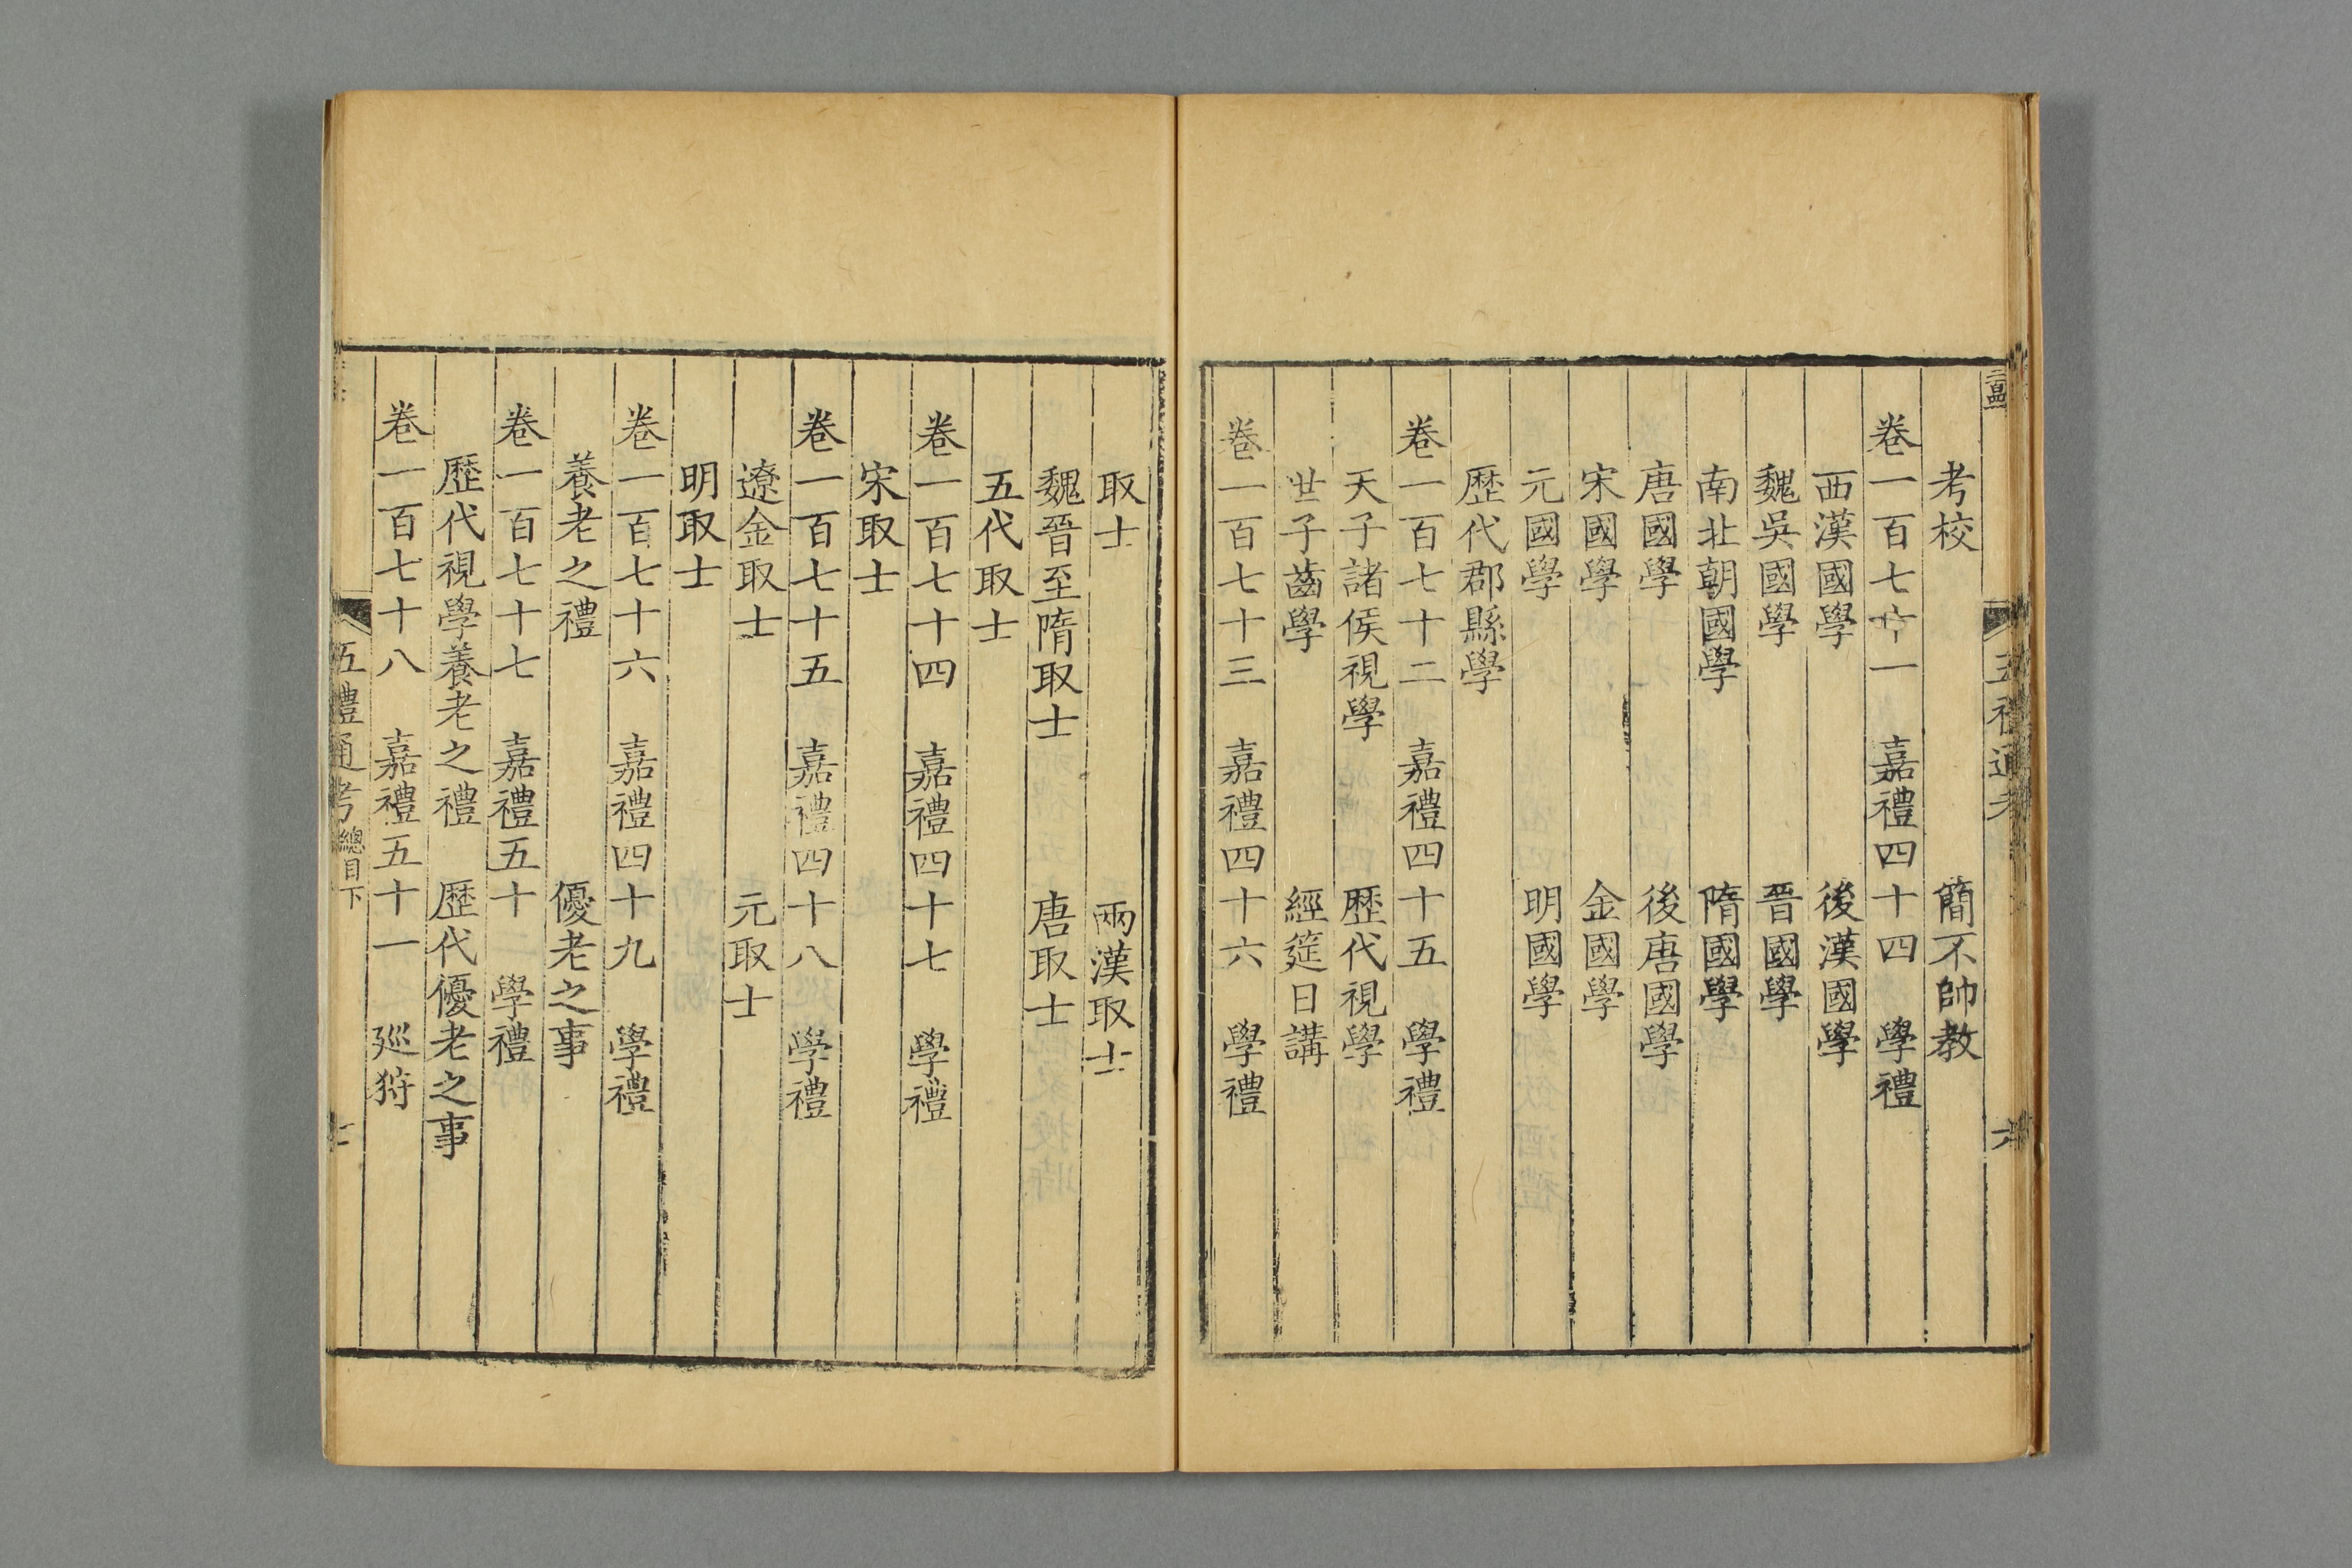 考校　簡不帥教
卷一百七十一　嘉禮四十四　學禮
西漢國學　後漢國學
魏吳國學　晉國學
南北朝國學　隋國學
唐國學　後唐國學
宋國學　金國學
元國學　明國學
歷代郡縣學
卷一百七十二　嘉禮四十五　學禮
天子諸侯視學　歷代視學
世子齒學　經筵日講
卷一百七十三　嘉禮四十六　學禮
取士　兩漢取士
魏晉至隋取士　唐取士
五代取士
卷一百七十四　嘉禮四十七　學禮
宋取士
卷一百七十五　嘉禮四十八　學禮
遼金取士　元取士
明取士
卷一百七十六　嘉禮四十九　學禮
養老之禮　優老之事
卷一百七十七　嘉禮五十　學禮
歷代視學養老之禮　歷代優老之事
卷一百七十八　嘉禮五十一　廵狩
五禮通考總目下